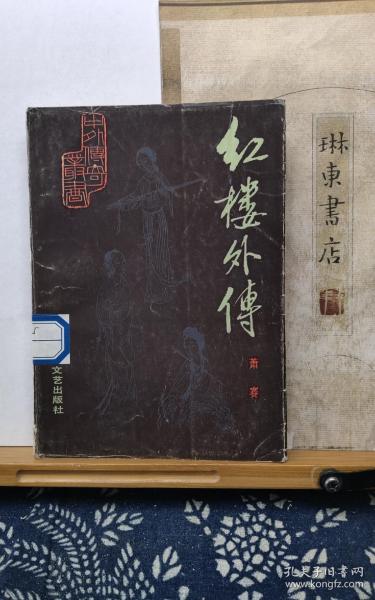 中外傳奇
叢書
红楼外傳
萧赛
文艺出版社
琳東書店
孔夫子旧书网
book.kongfz.com